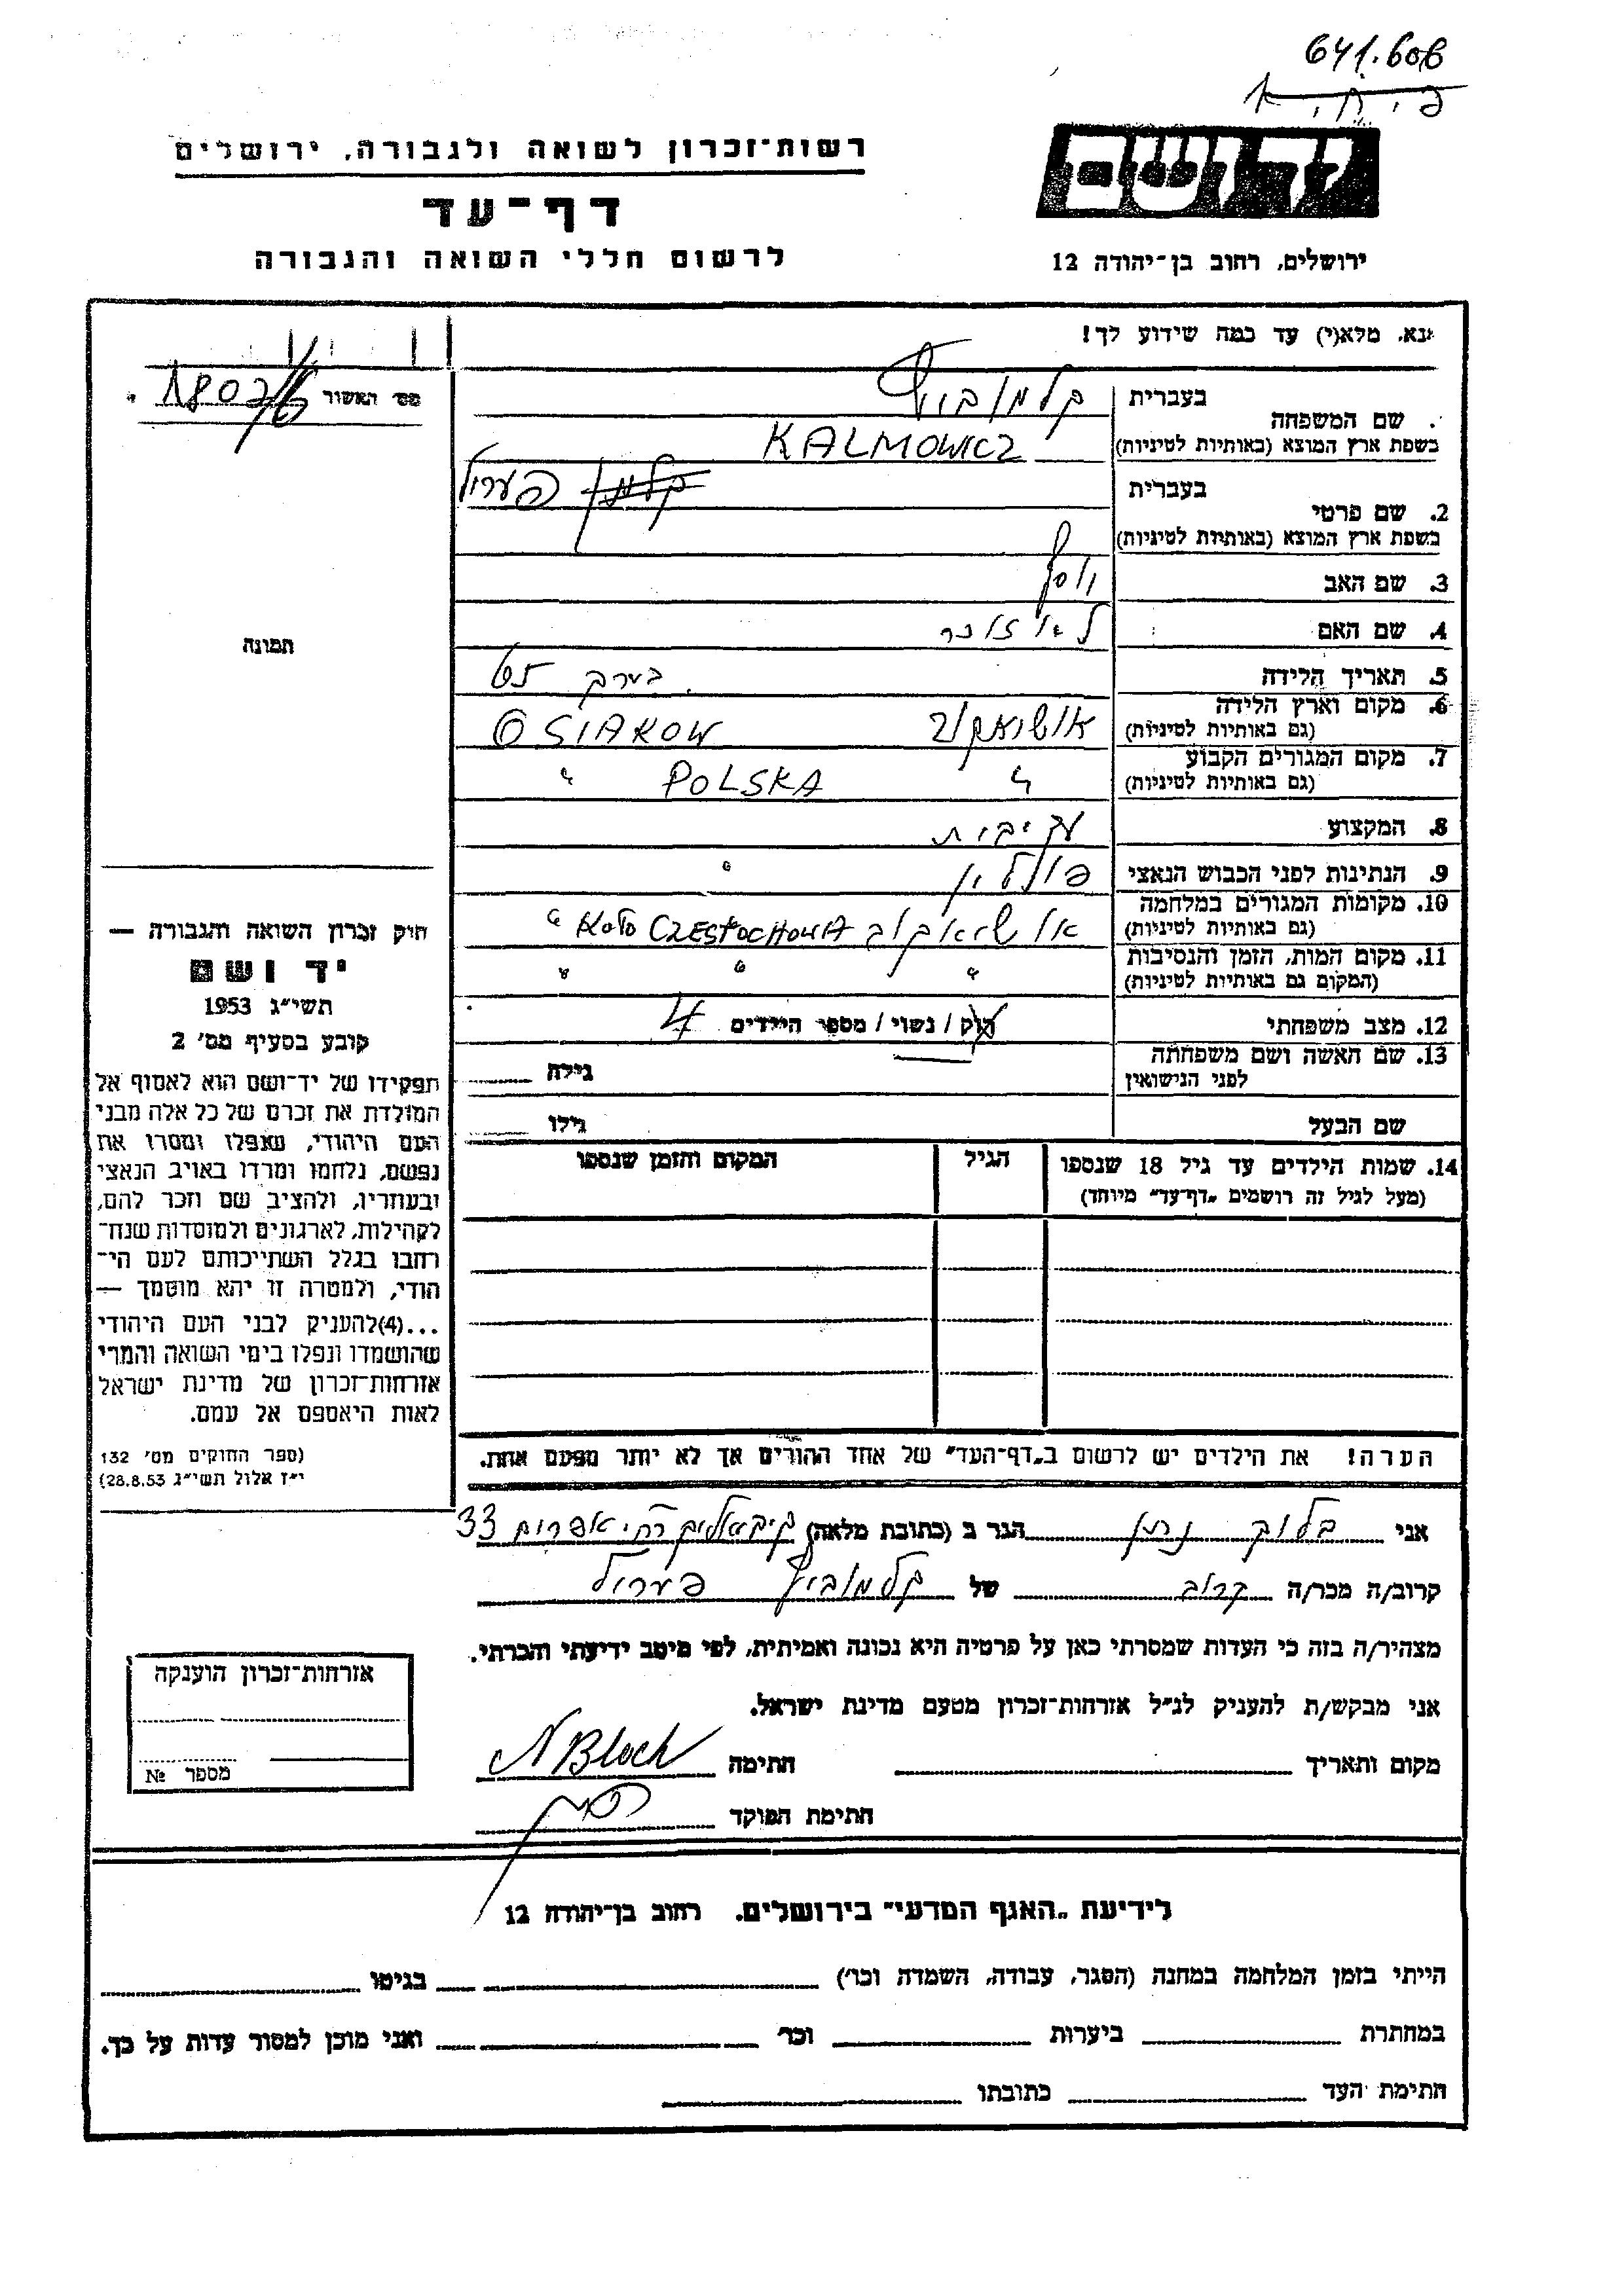 641.608
רשות-זכרון לשואה ולגבורה, ירושלים
דף-עד
לרשום חללי השואה והגבורה
ירושלים, רחוב בן-יהודה 12
נא, מלא(י) עד כמה שידוע לך!
מס' האשור
שם המשפחה בעברית קלמוביץ
בשפת ארץ המוצא (באותיות לטיניות) KALMOWICZ
2. שם פרטי בעברית קלמן פערל
בשפת ארץ המוצא (באותיות לטיניות)
3. שם האב יוסף
4. שם האם
5. תאריך הלידה בערך 65
6. מקום וארץ הלידה אושיאקוב OSIAKOW
(גם באותיות לטיניות)
7. מקום המגורים הקבוע " POLSKA "
(גם באותיות לטיניות)
8. המקצוע
9. הנתינות לפני הכבוש הנאצי פולין "
10. מקומות המגורים במלחמה אושיאקוב CZESTOCHOWA KOŁO "
(גם באותיות לטיניות)
11. מקום המות, הזמן והנסיבות " " "
(המקום גם באותיות לטיניות)
12. מצב משפחתי רוק / נשוי / מספר הילדים 4
13. שם האשה ושם משפחתה לפני הנישואין גילה
שם הבעל גילו
14. שמות הילדים עד גיל 18 שנספו הגיל המקום והזמן שנספו
(מעל לגיל זה רושמים „דף-עד" מיוחד)
הערה! את הילדים יש לרשום ב„דף-העד" של אחד ההורים אך לא יותר מפעם אחת.
תמונה
חוק זכרון השואה והגבורה —
יד ושם
תשי"ג 1953
קובע בסעיף מס' 2
תפקידו של יד-ושם הוא לאסוף אל
המולדת את זכרם של כל אלה מבני
העם היהודי, שנפלו ומסרו את
נפשם, נלחמו ומרדו באויב הנאצי
ובעוזריו, ולהציב שם וזכר להם,
לקהילות, לארגונים ולמוסדות שנח-
רבו בגלל השתייכותם לעם הי-
הודי, ולמטרה זו יהא מוסמך —
...(4)להעניק לבני העם היהודי
שהושמדו ונפלו בימי השואה והמרי
אזרחות-זכרון של מדינת ישראל
לאות היאספם אל עמם.
(ספר החוקים מס' 132
י"ז אלול תשי"ג 28.8.53)
אני בלוך נתן הגר ב (כתובת מלאה) אפרים 33
קרוב/ה מכר/ה קרוב של קלמוביץ פערל
מצהיר/ה בזה כי העדות שמסרתי כאן על פרטיה היא נכונה ואמיתית, לפי מיטב ידיעתי והכרתי.
אני מבקש/ת להעניק לנ"ל אזרחות-זכרון מטעם מדינת ישראל.
מקום ותאריך חתימה N Bloch
חתימת הפוקד
אזרחות-זכרון הוענקה
מספר №
לידיעת „האגף המדעי" בירושלים. רחוב בן-יהודה 12
הייתי בזמן המלחמה במחנה (הסגר, עבודה, השמדה וכו') בגיטו
במחתרת ביערות וכו' ואני מוכן למסור עדות על כך.
חתימת העד כתובתו